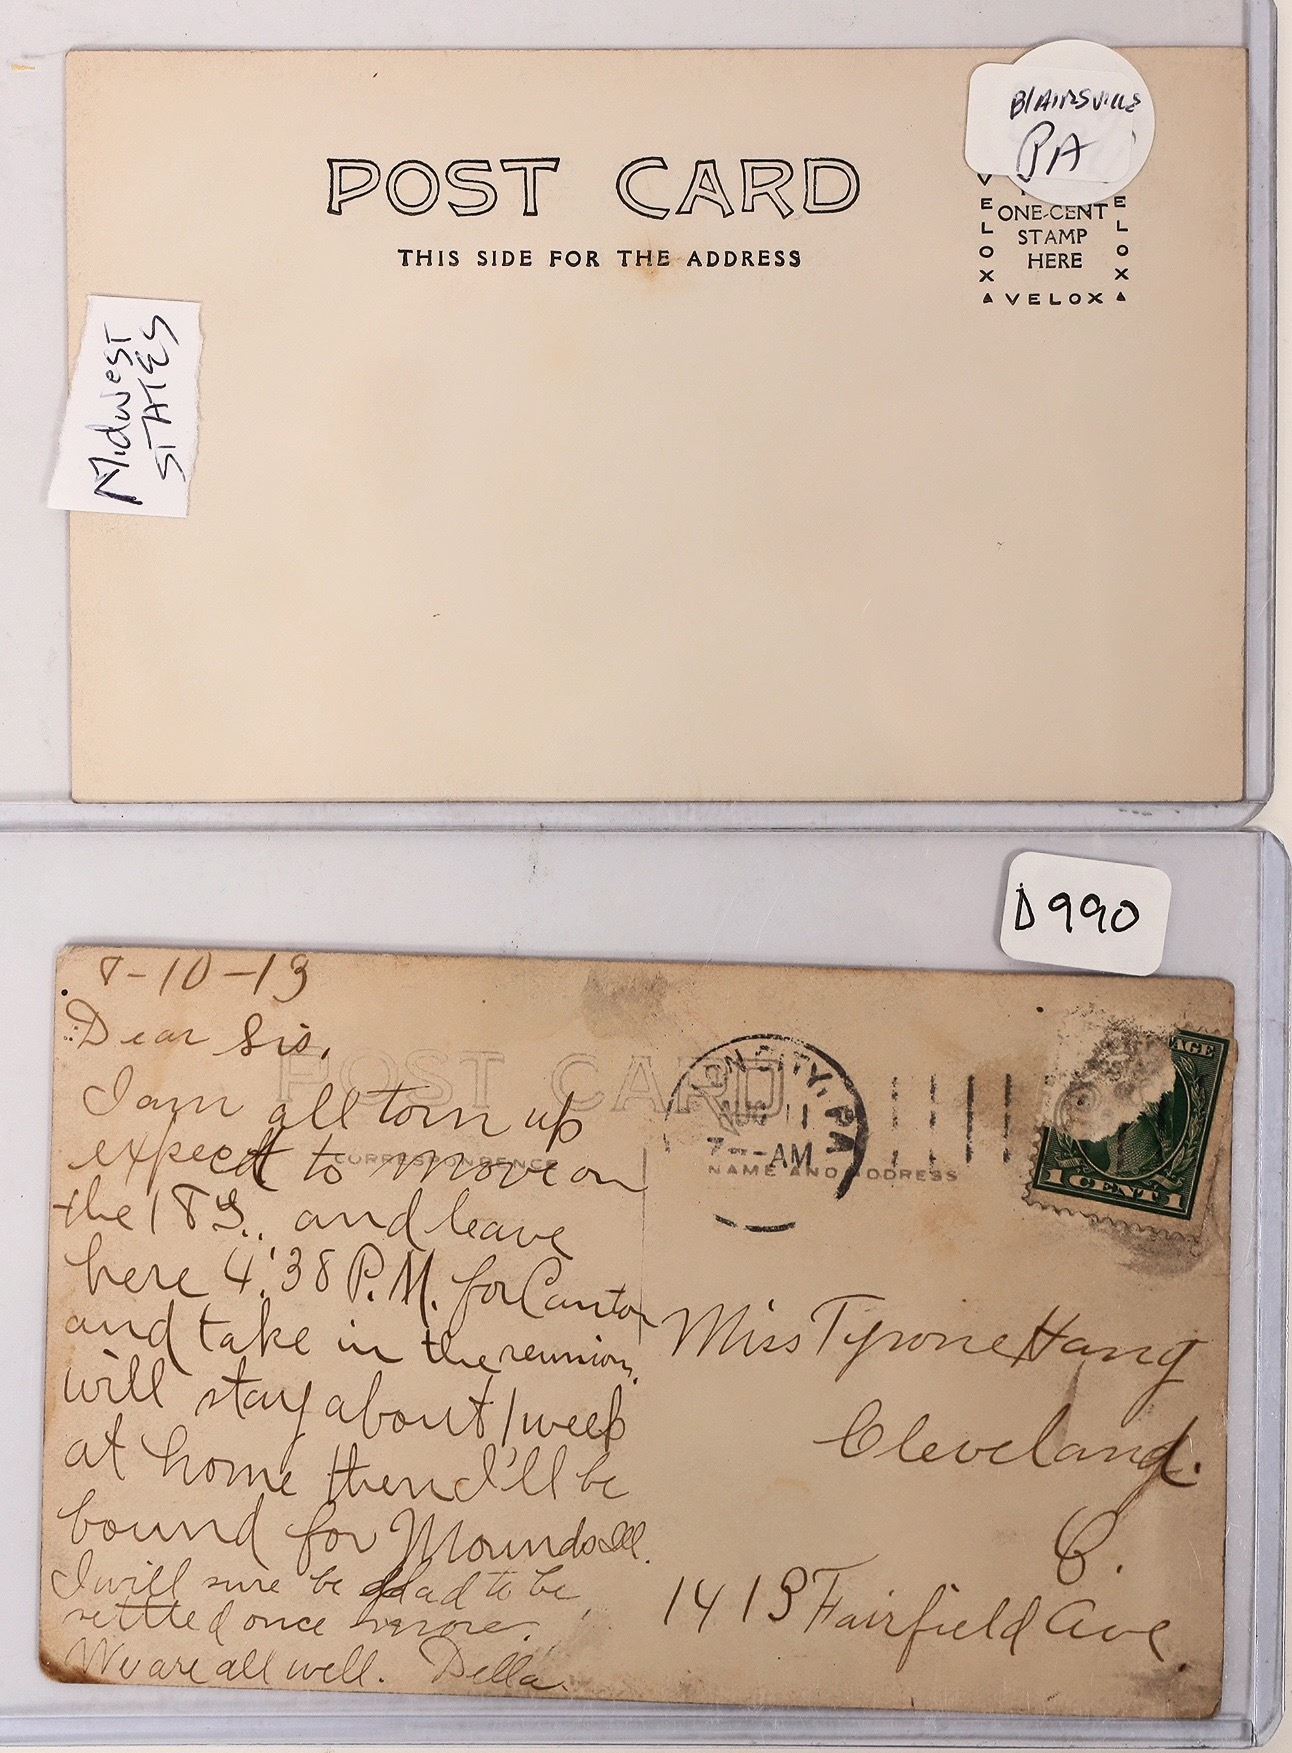 BLAIRSVILLE
PA
POST CARD
THIS SIDE FOR THE ADDRESS
VELOX
VELOX
ONE-CENT
STAMP
HERE
VELOX
Midwest
STATES
D990
8-10-13
Dear Sis.
I am all torn up
expect to move on
the 18th, and leave
here 4:38 P.M. for Canton
and take in the reunion,
will stay about 1 week
at home then I'll be
bound for Mounds Ill.
I will sure be glad to be
settled once more.
We are all well. Della.
POST CARD
CORRESPONDENCE
NAME AND ADDRESS
CITY, PA
AUG 11
7--AM
AGE
1 CENT 1
Miss Tyrone Hang
Cleveland.
O.
1413 Fairfield Ave.